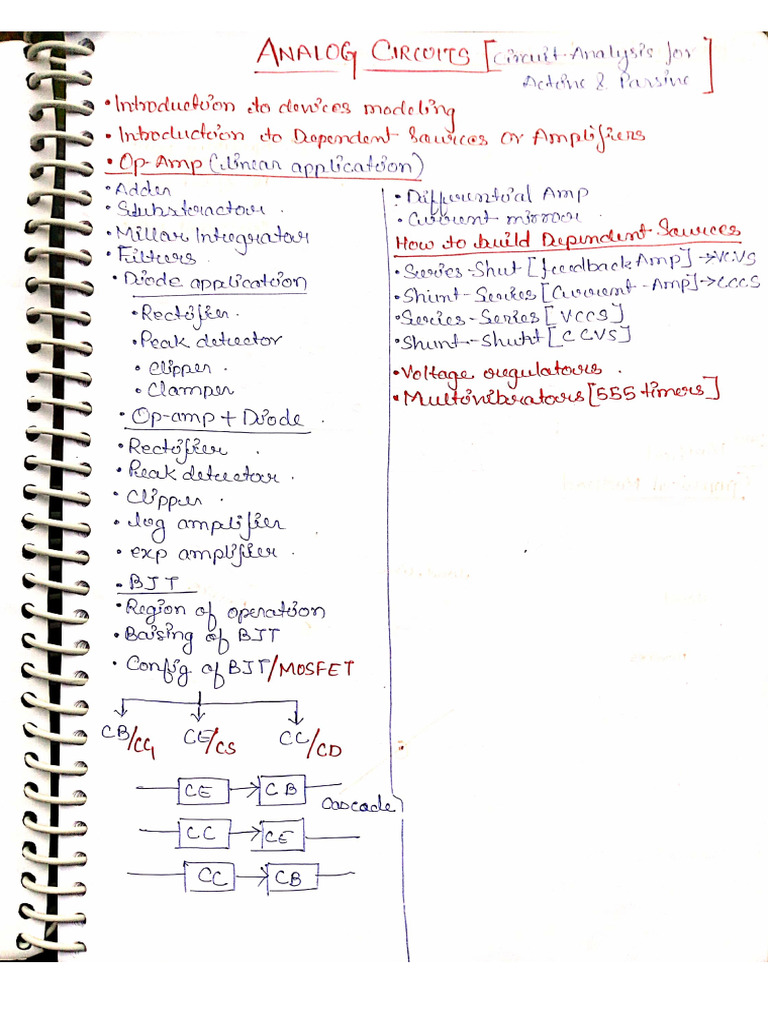 ANALOG CIRCUITS [Circuit Analysis for
Active & Passive]
• Introduction to devices modeling
• Introduction to Dependent Sources or Amplifiers
• Op-Amp (linear application)
• Adder
• Substractor.
• Millar Integrator
• Filters.
• Diode application
• Rectifier.
• Peak detector
• clipper.
• Clamper
• Op-amp + Diode.
• Rectifier.
• Peak detector.
• Clipper.
• log amplifier
• exp amplifier.
• BJT
• Region of operation
• Baising of BJT
• Config of BJT/MOSFET
CB/CG CE/CS CC/CD
CE CB
Cascade
CC CE
CC CB
• Differential Amp
• Current mirror.
How to build Dependent Sources
• Series-Shut [feedback Amp] → VCVS
• Shunt-Series [Current-Amp] → CCCS
• Series-Series [VCCS]
• Shunt-Shunt [CCVS]
• Voltage regulators.
• Multivibrators [555 timers]